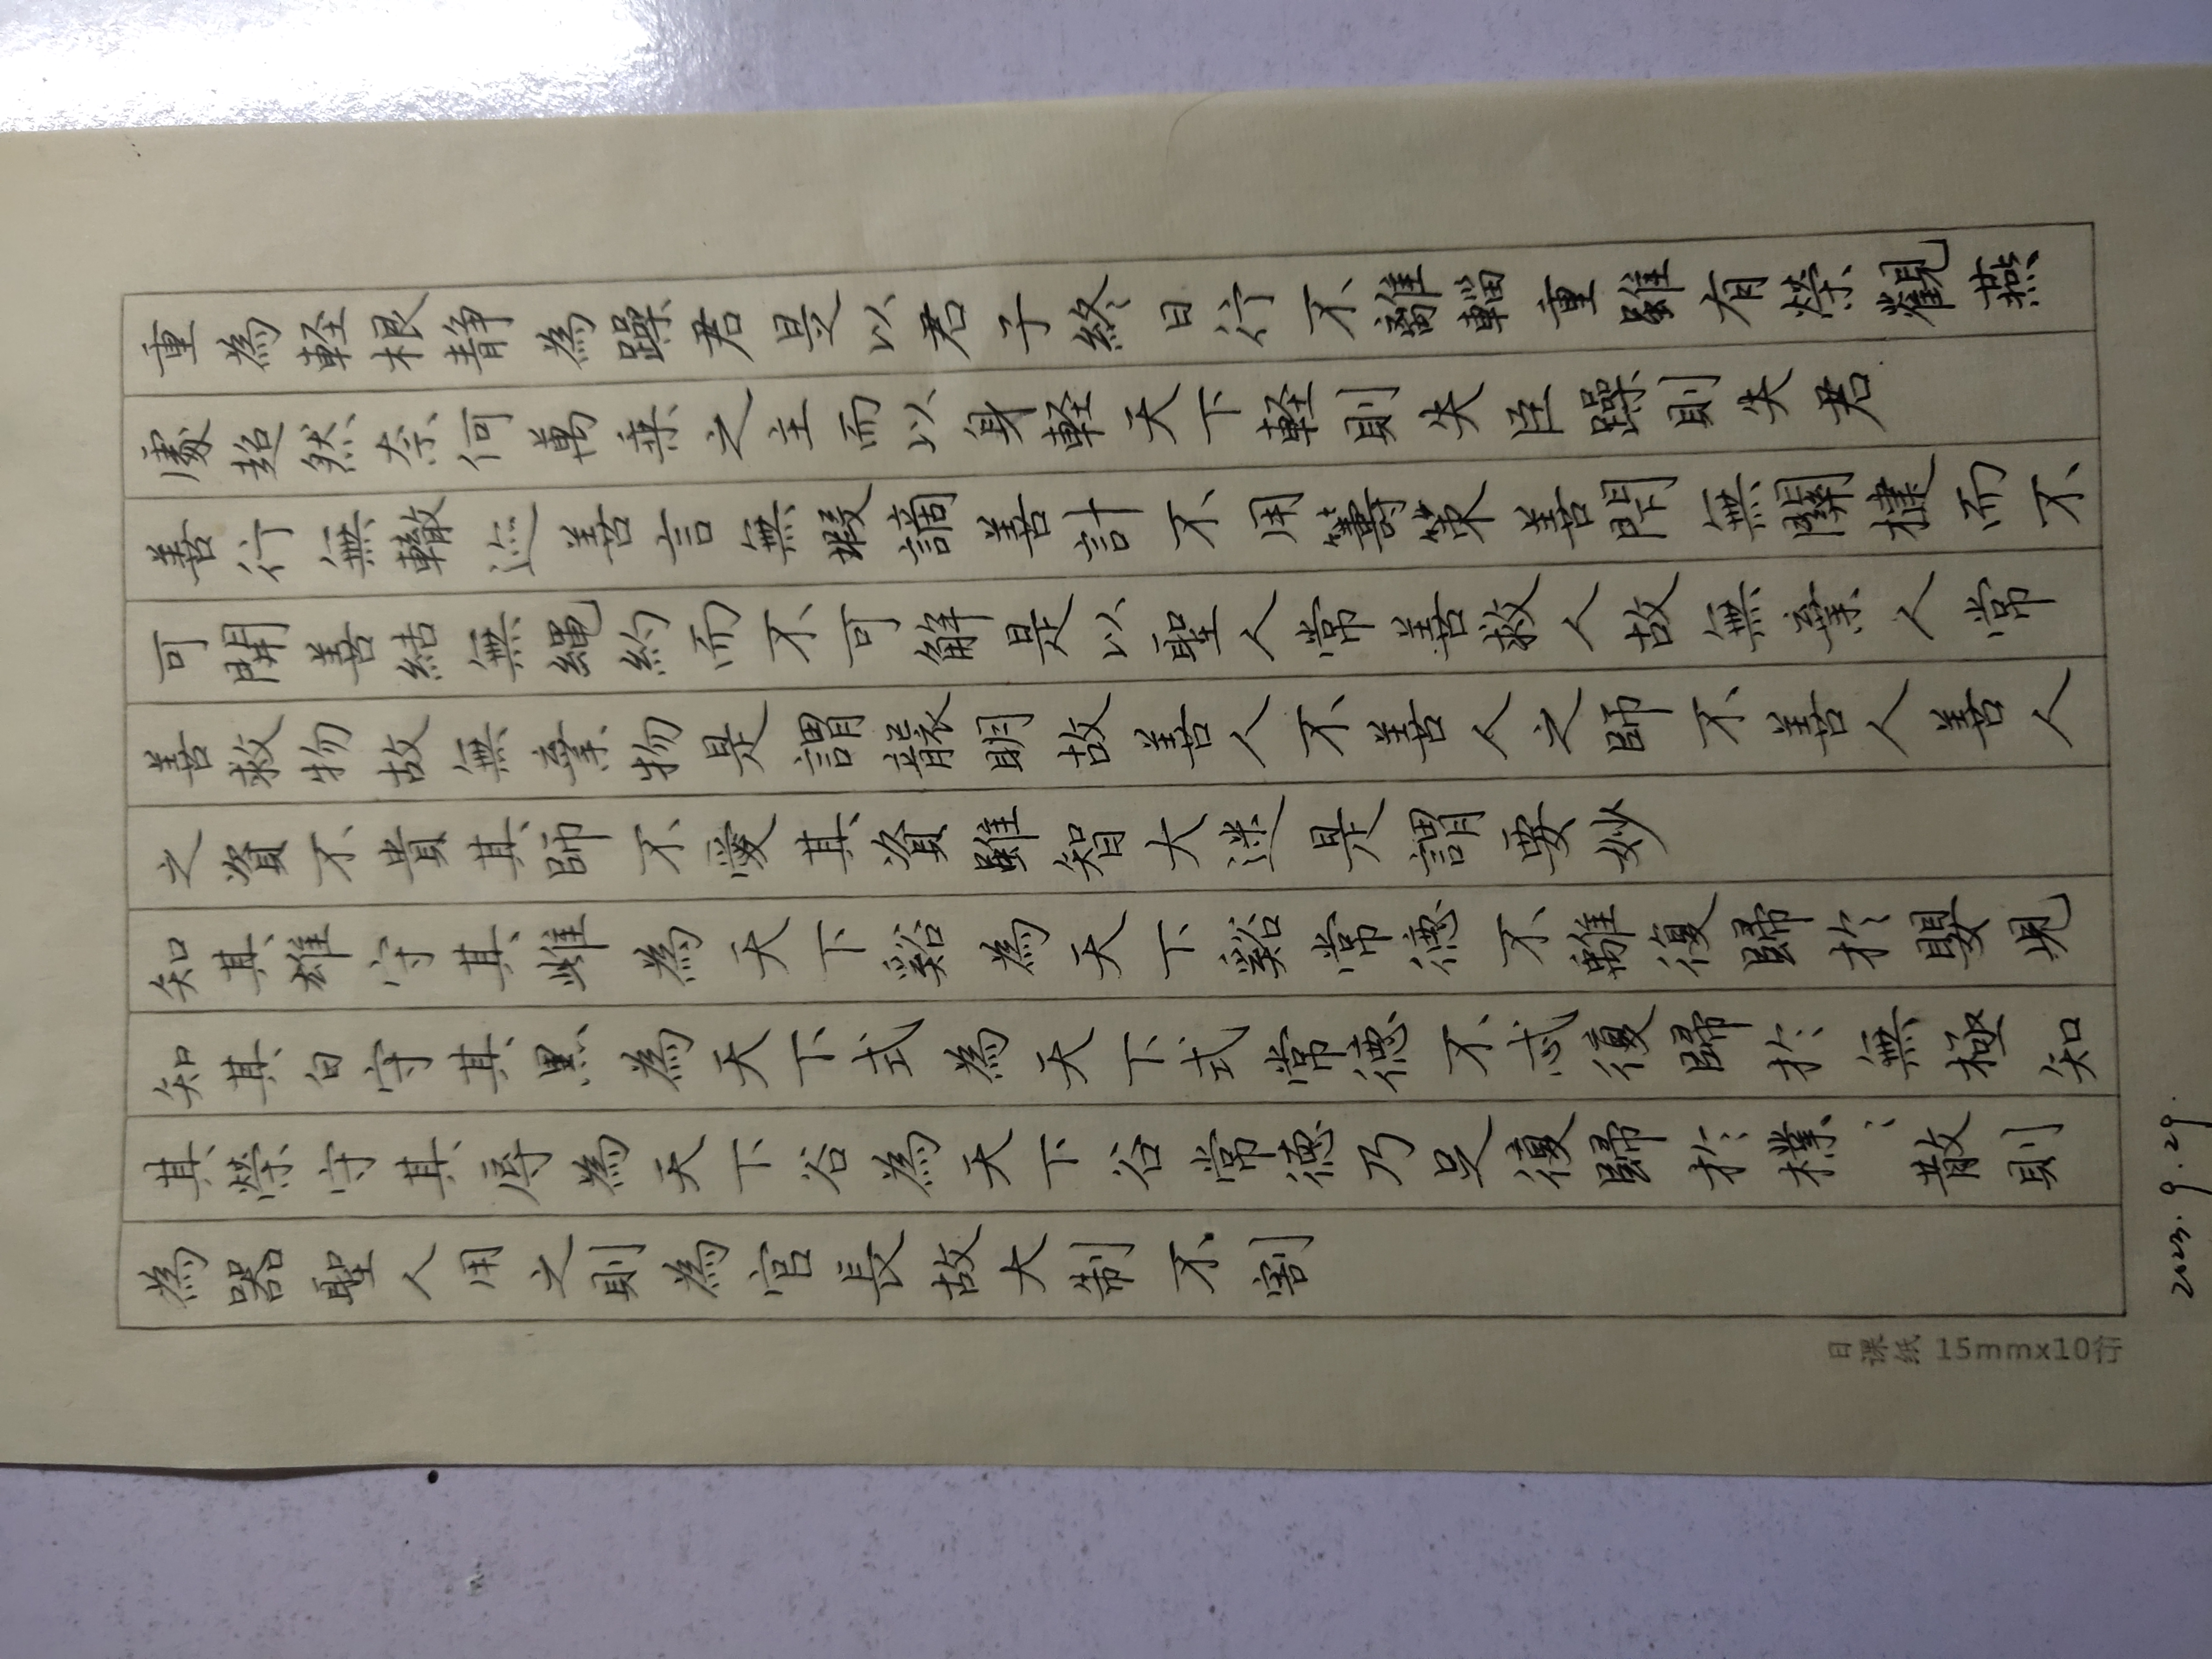 重為軽根静為躁君是以君子終日行不離輜重雖有榮觀燕
處超然奈何萬乗之主而以身軽天下軽則失臣躁則失君
善行無轍迹善言無瑕謫善計不用籌策善閇無關楗而不
可開善結無繩約而不可解是以聖人常善救人故無棄人常
善救物故無棄物是謂襲明故善人不善人之師不善人善人
之資不貴其師不愛其資雖智大迷是謂要妙
知其雄守其雌為天下谿為天下谿常德不離復歸於嬰児
知其白守其黒為天下式為天下式常德不忒復歸於無極知
其榮守其辱為天下谷為天下谷常德乃足復歸於樸〻散則
為器聖人用之則為官長故大制不割
日课纸 15mmx10行
2023.9.29.